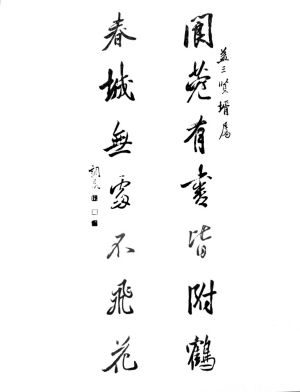 閬苑有書皆附鶴
益三賢婿屬
春城無處不飛花